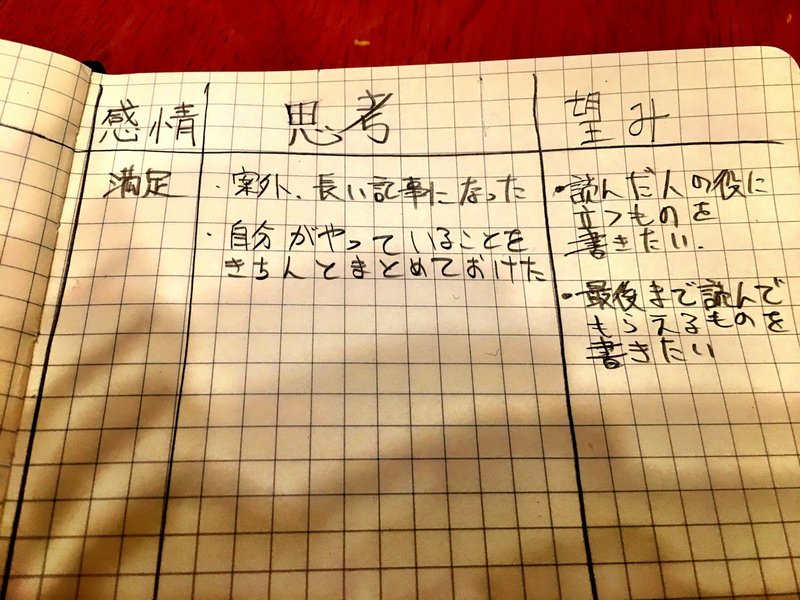 感情
思考
望み
満足
・案外、長い記事になった
・自分がやっていることを
きちんとまとめておけた
・読んだ人の役に
立つものを
書きたい.
・最後まで読んで
もらえるものを
書きたい